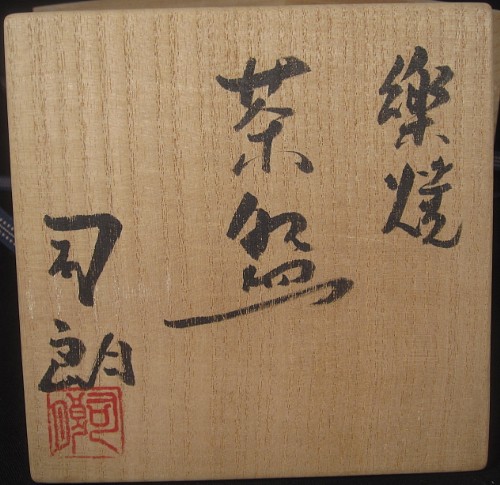 樂焼
茶盌
司朗